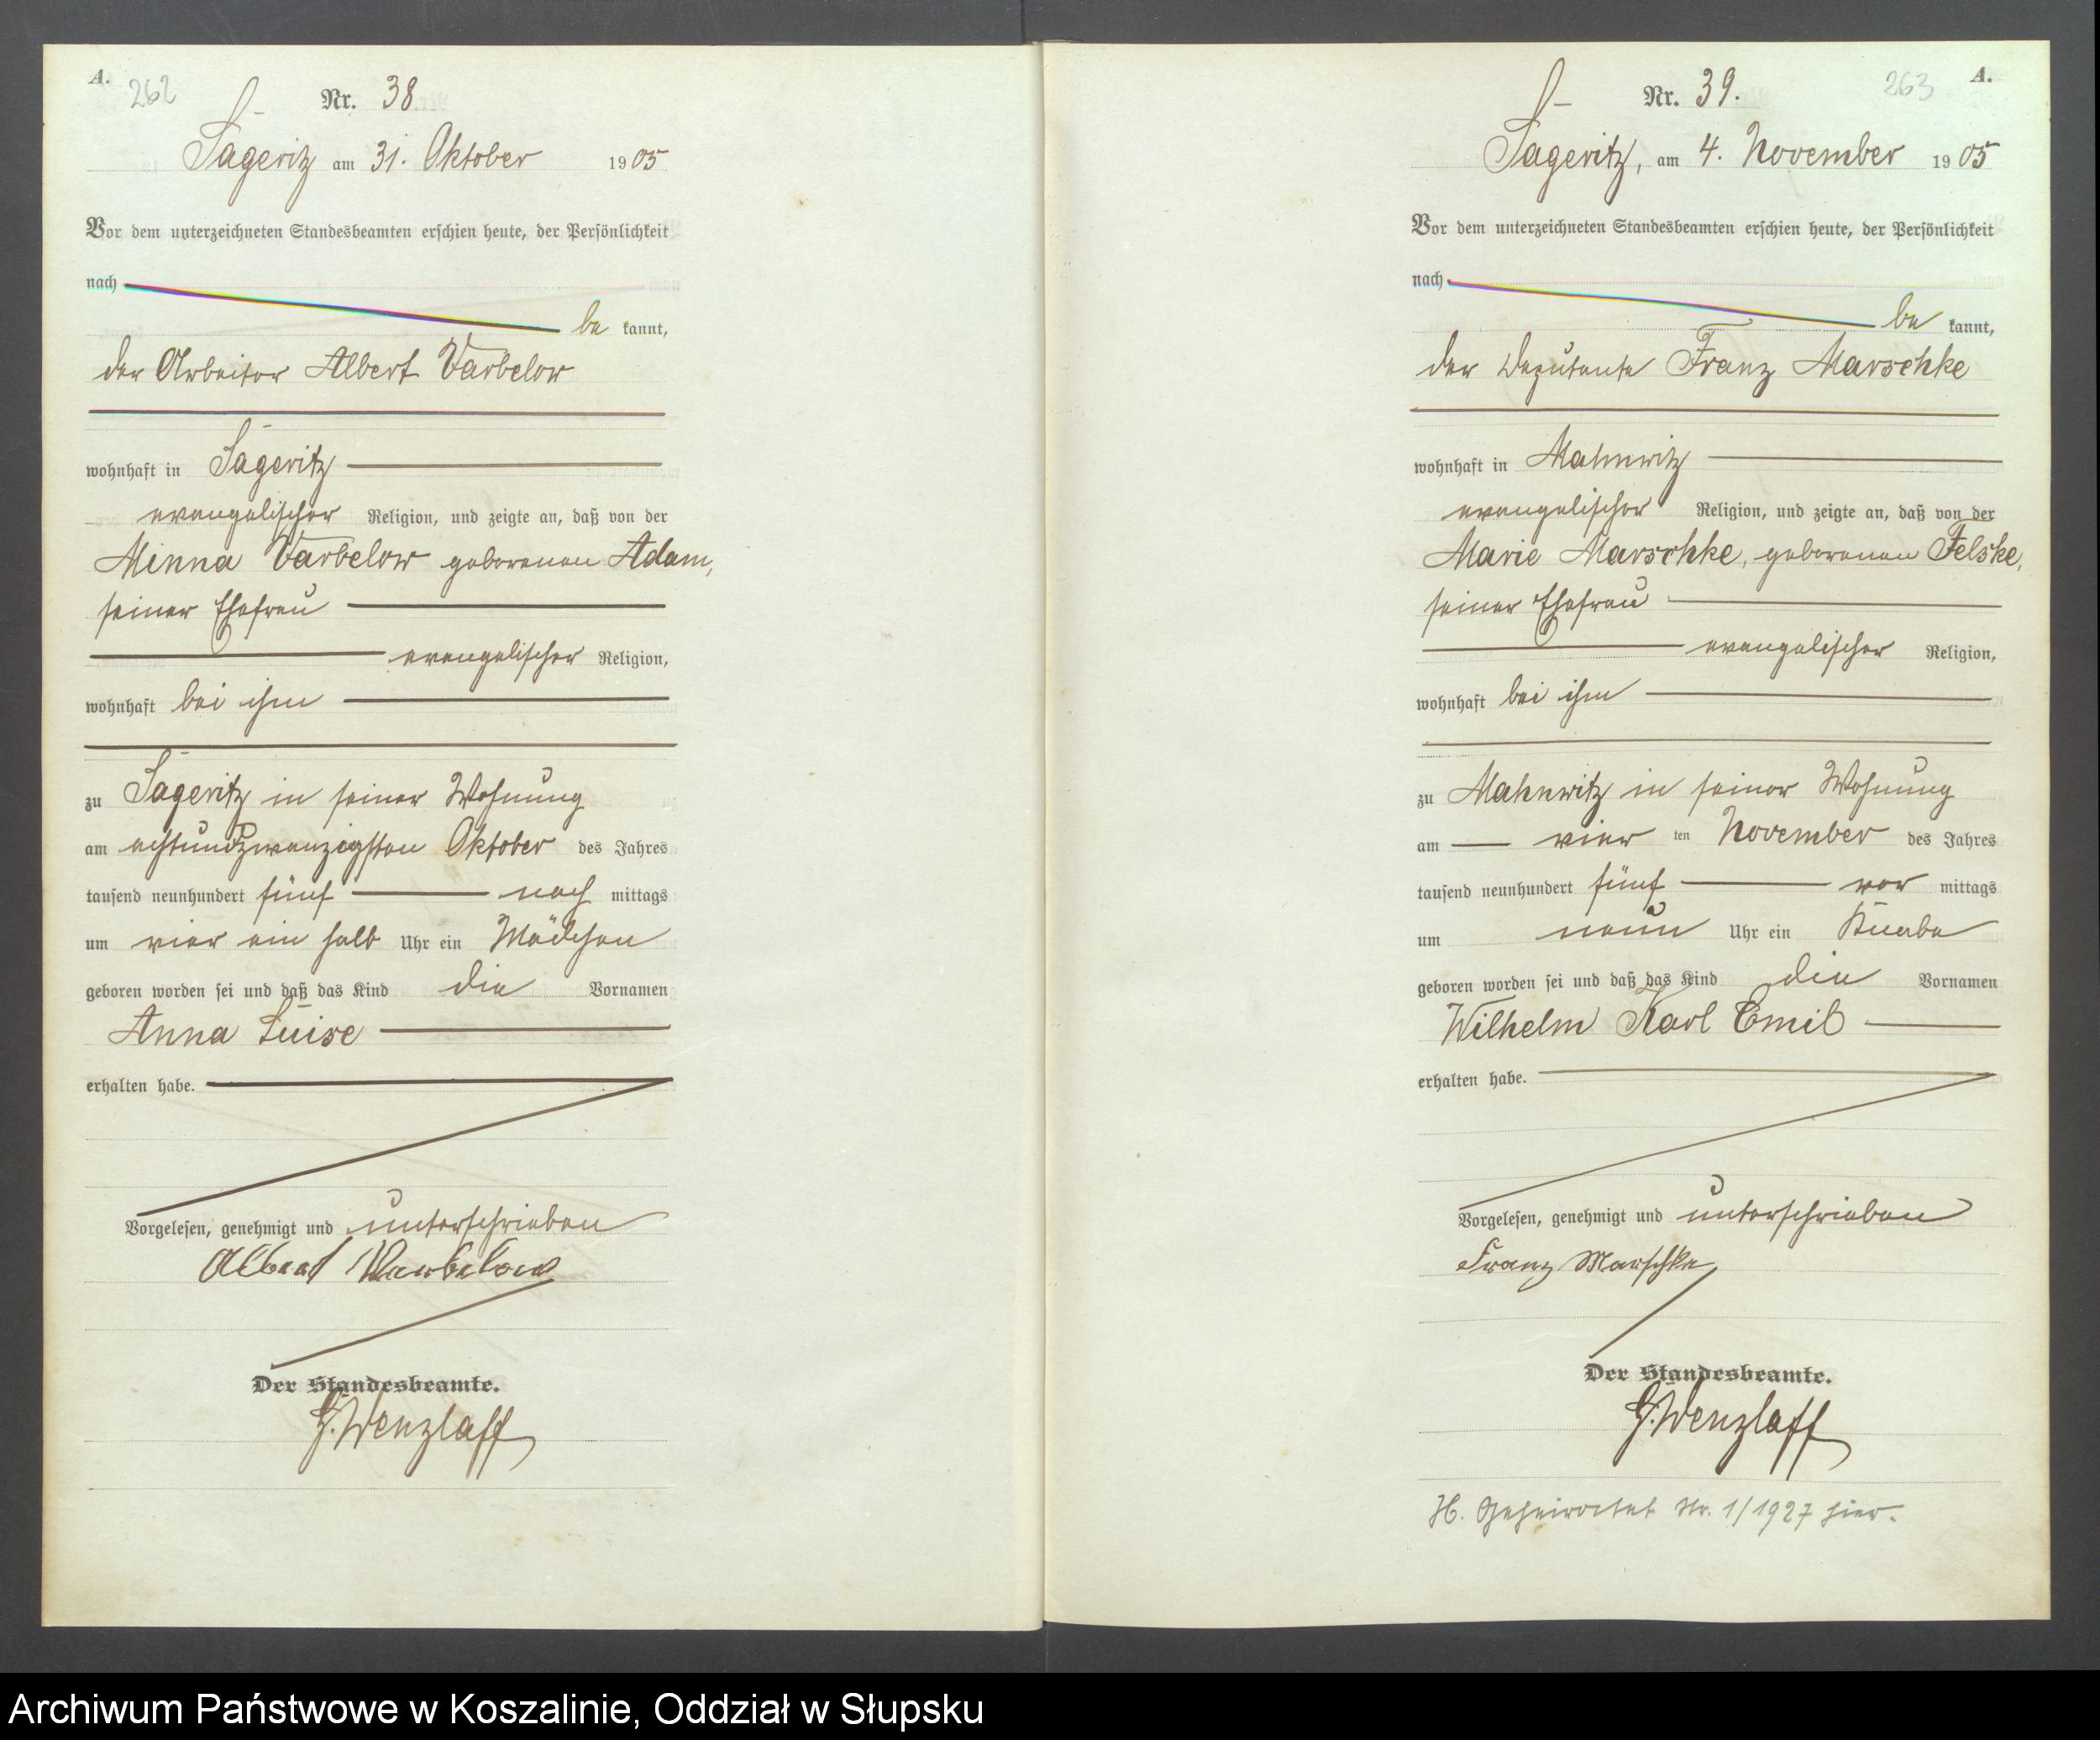 A.
262
Nr. 38
Sageritz am 31. Oktober 1905
Vor dem unterzeichneten Standesbeamten erschien heute, der Persönlichkeit
nach
be kannt,
der Arbeiter Albert Varbelow
wohnhaft in Sageritz
evangelischer Religion, und zeigte an, daß von der
Minna Varbelow geborenen Adam,
seiner Ehefrau
evangelischer Religion,
wohnhaft bei ihm
zu Sageritz in seiner Wohnung
am achtundzwanzigsten Oktober des Jahres
tausend neunhundert fünf nach mittags
um vier ein halb Uhr ein Mädchen
geboren worden sei und daß das Kind die Vornamen
Anna Luise
erhalten habe.
Vorgelesen, genehmigt und unterschrieben
Albert Warbelow
Der Standesbeamte.
G. Wenzlaff
263
A.
Nr. 39.
Sageritz, am 4. November 1905
Vor dem unterzeichneten Standesbeamten erschien heute, der Persönlichkeit
nach
be kannt,
der Deputant Franz Marschke
wohnhaft in Mahnwitz
evangelischer Religion, und zeigte an, daß von der
Marie Marschke, geborenen Felske,
seiner Ehefrau
evangelischer Religion,
wohnhaft bei ihm
zu Mahnwitz in seiner Wohnung
am vier ten November des Jahres
tausend neunhundert fünf vor mittags
um neun Uhr ein Knabe
geboren worden sei und daß das Kind die Vornamen
Wilhelm Karl Emil
erhalten habe.
Vorgelesen, genehmigt und unterschrieben
Franz Marschke
Der Standesbeamte.
G. Wenzlaff
H. Geheiratet Nr. 1/1927 hier.
Archiwum Państwowe w Koszalinie, Oddział w Słupsku